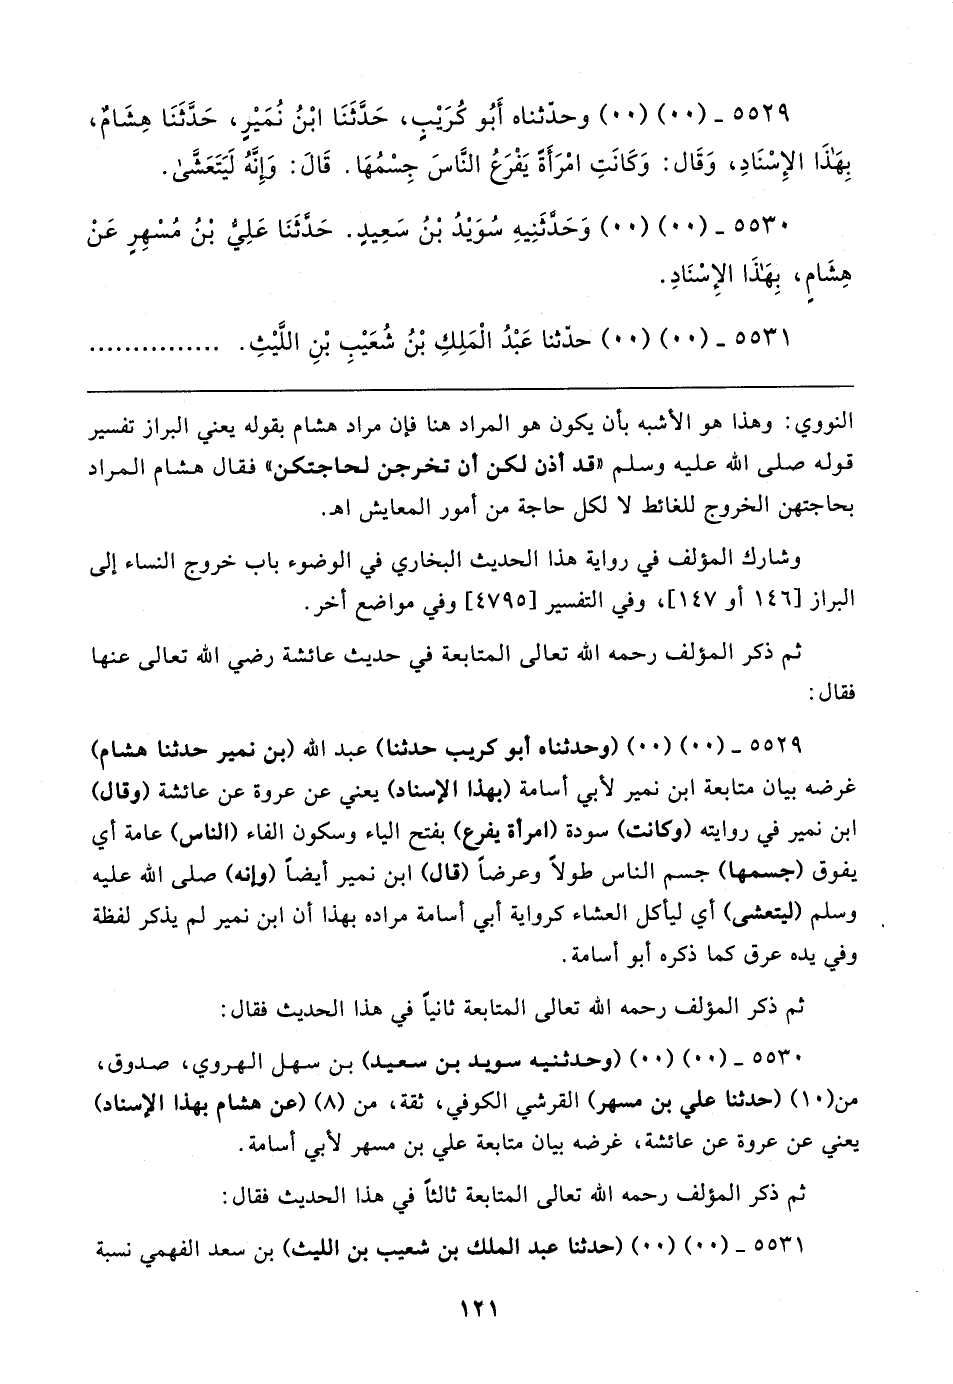 ٥٥٢٩ ـ (٠٠) (٠٠) وحدّثناه أَبُو كُرَيْبٍ، حَدَّثَنَا ابْنُ نُمَيْرٍ، حَدَّثَنَا هِشَامٌ،
بِهَٰذَا الإِسْنَادِ، وَقَالَ: وَكَانَتِ امْرَأَةً يَفْرَعُ النَّاسَ جِسْمُهَا. قَالَ: وَإِنَّهُ لَيَتَعَشَّىٰ.
٥٥٣٠ ـ (٠٠) (٠٠) وَحَدَّثَنِيهِ سُوَيْدُ بْنُ سَعِيدٍ. حَدَّثَنَا عَلِيُّ بْنُ مُسْهِرٍ عَنْ
هِشَامٍ، بِهَٰذَا الإِسْنَادِ.
٥٥٣١ ـ (٠٠) (٠٠) حدّثنا عَبْدُ الْمَلِكِ بْنُ شُعَيْبِ بْنِ اللَّيْثِ. ...............
النووي: وهذا هو الأشبه بأن يكون هو المراد هنا فإن مراد هشام بقوله يعني البراز تفسير
قوله صلى الله عليه وسلم «قد أذن لكن أن تخرجن لحاجتكن» فقال هشام المراد
بحاجتهن الخروج للغائط لا لكل حاجة من أمور المعايش اهـ.
وشارك المؤلف في رواية هذا الحديث البخاري في الوضوء باب خروج النساء إلى
البراز [١٤٦ أو ١٤٧]، وفي التفسير [٤٧٩٥] وفي مواضع أخر.
ثم ذكر المؤلف رحمه الله تعالى المتابعة في حديث عائشة رضي الله تعالى عنها
فقال:
٥٥٢٩ ـ (٠٠) (٠٠) (وحدثناه أبو كريب حدثنا) عبد الله (بن نمير حدثنا هشام)
غرضه بيان متابعة ابن نمير لأبي أسامة (بهذا الإسناد) يعني عن عروة عن عائشة (وقال)
ابن نمير في روايته (وكانت) سودة (امرأة يفرع) بفتح الياء وسكون الفاء (الناس) عامة أي
يفوق (جسمها) جسم الناس طولاً وعرضاً (قال) ابن نمير أيضاً (وإنه) صلى الله عليه
وسلم (ليتعشى) أي ليأكل العشاء كرواية أبي أسامة مراده بهذا أن ابن نمير لم يذكر لفظة
وفي يده عرق كما ذكره أبو أسامة.
ثم ذكر المؤلف رحمه الله تعالى المتابعة ثانياً في هذا الحديث فقال:
٥٥٣٠ ـ (٠٠) (٠٠) (وحدثنيه سويد بن سعيد) بن سهل الهروي، صدوق،
من(١٠) (حدثنا علي بن مسهر) القرشي الكوفي، ثقة، من (٨) (عن هشام بهذا الإسناد)
يعني عن عروة عن عائشة، غرضه بيان متابعة علي بن مسهر لأبي أسامة.
ثم ذكر المؤلف رحمه الله تعالى المتابعة ثالثاً في هذا الحديث فقال:
٥٥٣١ ـ (٠٠) (٠٠) (حدثنا عبد الملك بن شعيب بن الليث) بن سعد الفهمي نسبة
١٢١